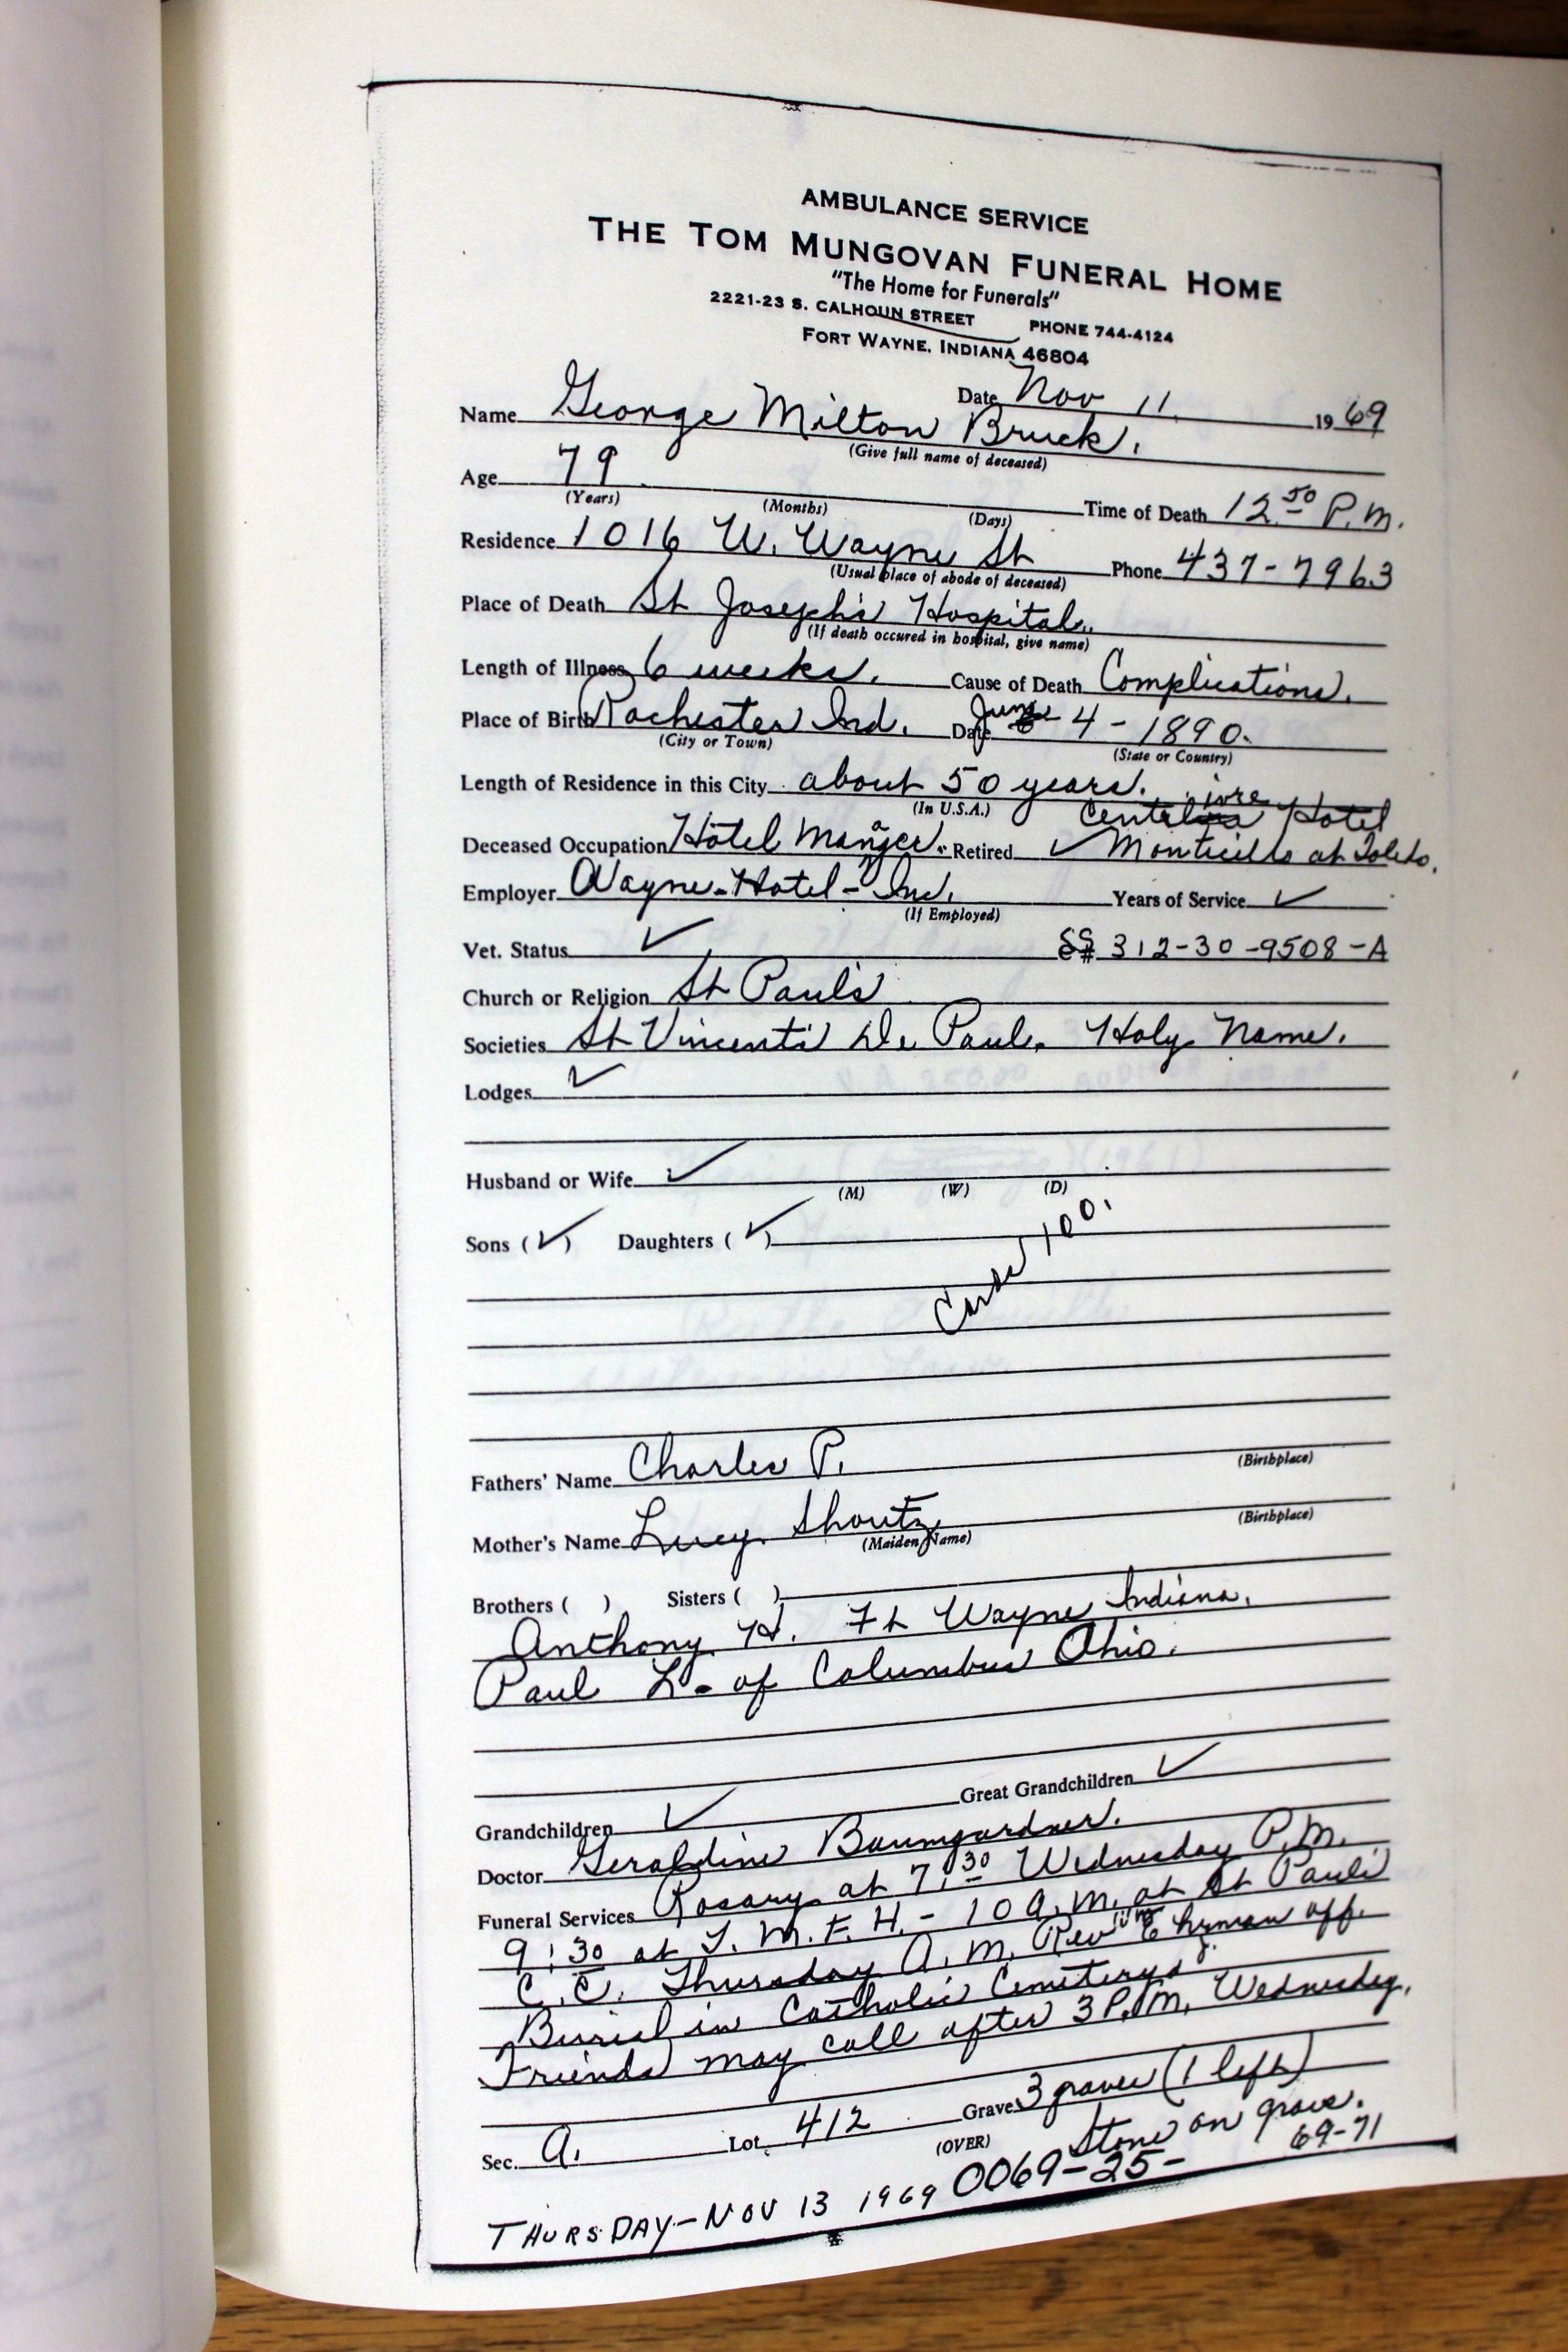 AMBULANCE SERVICE
THE TOM MUNGOVAN FUNERAL HOME
"The Home for Funerals"
2221-23 S. CALHOUN STREET PHONE 744-4124
FORT WAYNE, INDIANA 46804
Date Nov 11 1969
Name George Milton Bruck.
(Give full name of deceased)
Age 79 Time of Death 12 50 P.M.
(Years) (Months) (Days)
Residence 1016 W. Wayne St Phone 437-7963
(Usual place of abode of deceased)
Place of Death St Joseph's Hospital.
(If death occured in hospital, give name)
Length of Illness 6 weeks. Cause of Death Complications.
Place of Birth Rochester Ind. Date June 4-1890.
(City or Town) (State or Country)
Length of Residence in this City about 50 years.
(In U.S.A.)
Hotel
Deceased Occupation Hotel Manger. Retired ✓ Monticello at Toledo.
Employer Wayne-Hotel-Ind. Years of Service ✓
(If Employed)
Vet. Status ✓ SS# 312-30-9508-A
Church or Religion St Paul's
Societies St Vincent's De Paul. Holy Name.
Lodges ✓
Husband or Wife ✓
(M) (W) (D)
Sons (✓) Daughters (✓)
Cards 100.
Fathers' Name Charles P.
(Birthplace)
Mother's Name Lucy Shoutz
(Maiden Name) (Birthplace)
Brothers ( ) Sisters ( )
Anthony H. Ft Wayne Indiana.
Paul L. of Columbus Ohio.
Grandchildren ✓ Great Grandchildren ✓
Doctor Geraldine Baumgardner.
Funeral Services Rosary at 7:30 Wednesday P.M.
9:30 at T.M.F.H.-10 A.M. at St Paul's
C.C. Thursday A.M. Rev off.
Burial in Catholic Cemetery.
Friends may call after 3 P.M. Wednesday.
Sec. A. Lot 412 Grave 3 graves (1 left)
(OVER) Stone on grave.
69-71
THURSDAY-NOV 13 1969 0069-25-